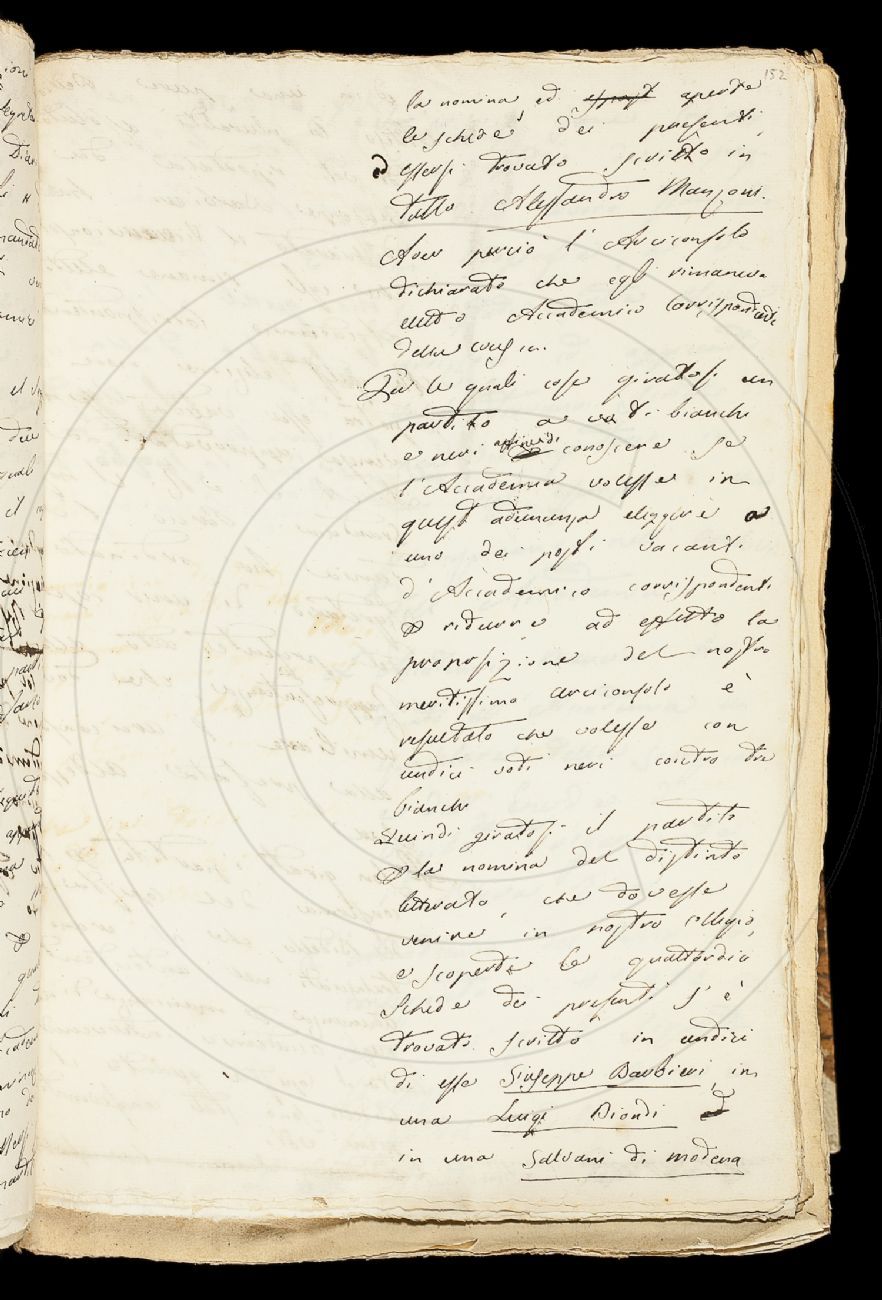 152
la nomina, ed aperte
le schede dei presenti,
ed essersi trovato scritto in
tutte Alessandro Manzoni.
Aver perciò l'Arciconsolo
dichiarato che egli rimaneva
eletto Accademico Corrispondente
della Crusca.
Per le quali cose giratosi un
partito a voti bianchi
e neri affine di conoscere se
l'Accademia volesse in
quest'adunanza eleggere a
uno dei posti vacanti
d'Accademico corrispondente
e ridurre ad effetto la
proposizione del nostro
meritissimo arciconsolo è
resultato che volesse con
undici voti neri contro tre
bianchi
Quindi giratosi il partito
la nomina del distinto
letterato, che dovesse
venire in nostro collegio,
e scoperte le quattordici
schede dei presenti s'è
trovato scritto in undici
di esse Giuseppe Barbieri, in
una Luigi Biondi ed
in una Salvani di Modena